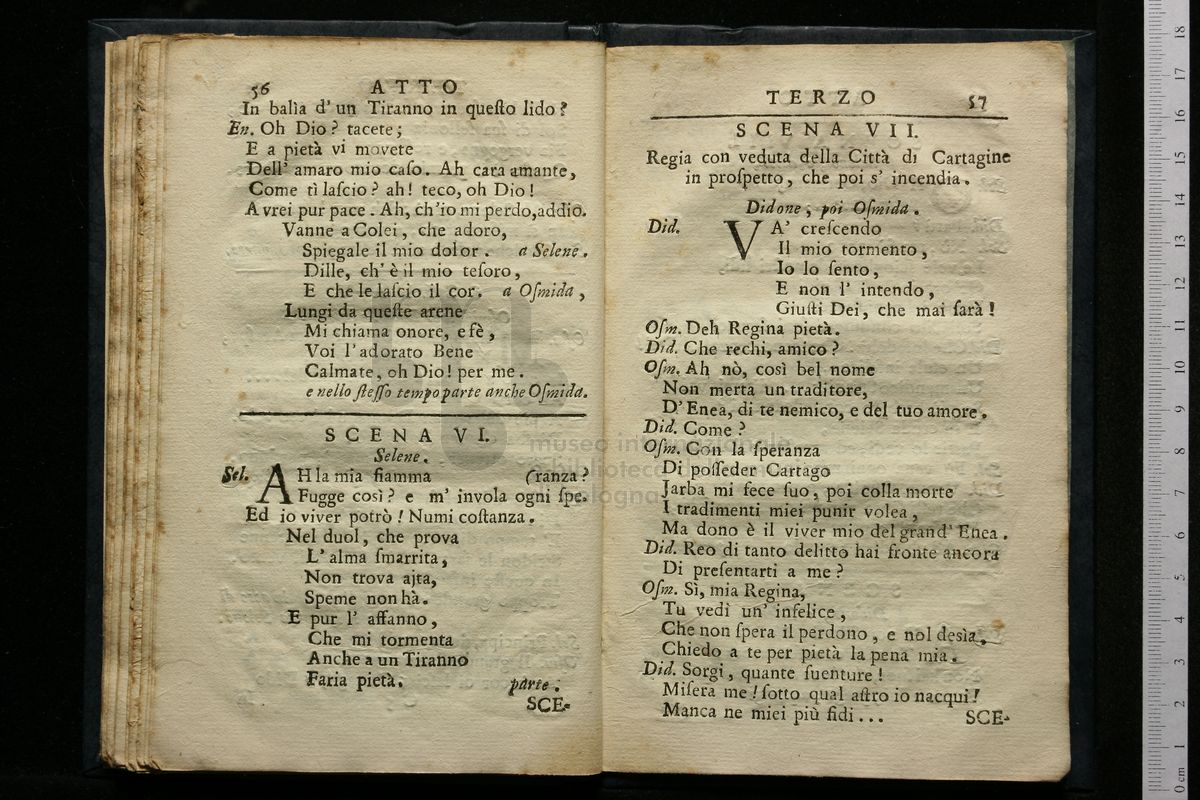 56 ATTO
In balìa d' un Tiranno in queſto lido?
En. Oh Dio? tacete;
E a pietà vi movete
Dell' amaro mio caſo. Ah cara amante,
Come tì laſcio? ah! teco, oh Dio!
Avrei pur pace. Ah, ch'io mi perdo, addio.
Vanne a Colei, che adoro,
Spiegale il mio dolor. a Selene.
Dille, ch' è il mio teſoro,
E che le laſcio il cor. a Oſmida,
Lungi da queſte arene
Mi chiama onore, e fè,
Voi l'adorato Bene
Calmate, oh Dio! per me.
e nello ſteſſo tempo parte anche Oſmida.
SCENA VI.
Selene.
Sel. AH la mia fiamma (ranza?
Fugge così? e m' invola ogni ſpe.
Ed io viver potrò! Numi coſtanza.
Nel duol, che prova
L' alma ſmarrita,
Non trova ajta,
Speme non hà.
E pur l' affanno,
Che mi tormenta
Anche a un Tiranno
Faria pietà. parte.
SCE-
TERZO 57
SCENA VII.
Regia con veduta della Città di Cartagine
in proſpetto, che poi s' incendia.
Didone, poi Oſmida.
Did. VA' creſcendo
Il mio tormento,
Io lo ſento,
E non l' intendo,
Giuſti Dei, che mai ſarà!
Oſm. Deh Regina pietà.
Did. Che rechi, amico?
Oſm. Ah nò, così bel nome
Non merta un traditore,
D' Enea, di te nemico, e del tuo amore.
Did. Come?
Oſm. Con la ſperanza
Di poſſeder Cartago
Jarba mi fece ſuo, poi colla morte
I tradimenti miei punir volea,
Ma dono è il viver mio del grand' Enea.
Did. Reo di tanto delitto hai fronte ancora
Di preſentarti a me?
Oſm. Sì, mia Regina,
Tu vedì un' infelice,
Che non ſpera il perdono, e nol desìa,
Chiedo a te per pietà la pena mia.
Did. Sorgi, quante ſuenture!
Miſera me! ſotto qual aſtro io nacqui!
Manca ne miei più fidi...
SCE-
museo internazionale
e biblioteca
bologna
0 cm 1 2 3 4 5 6 7 8 9 10 11 12 13 14 15 16 17 18